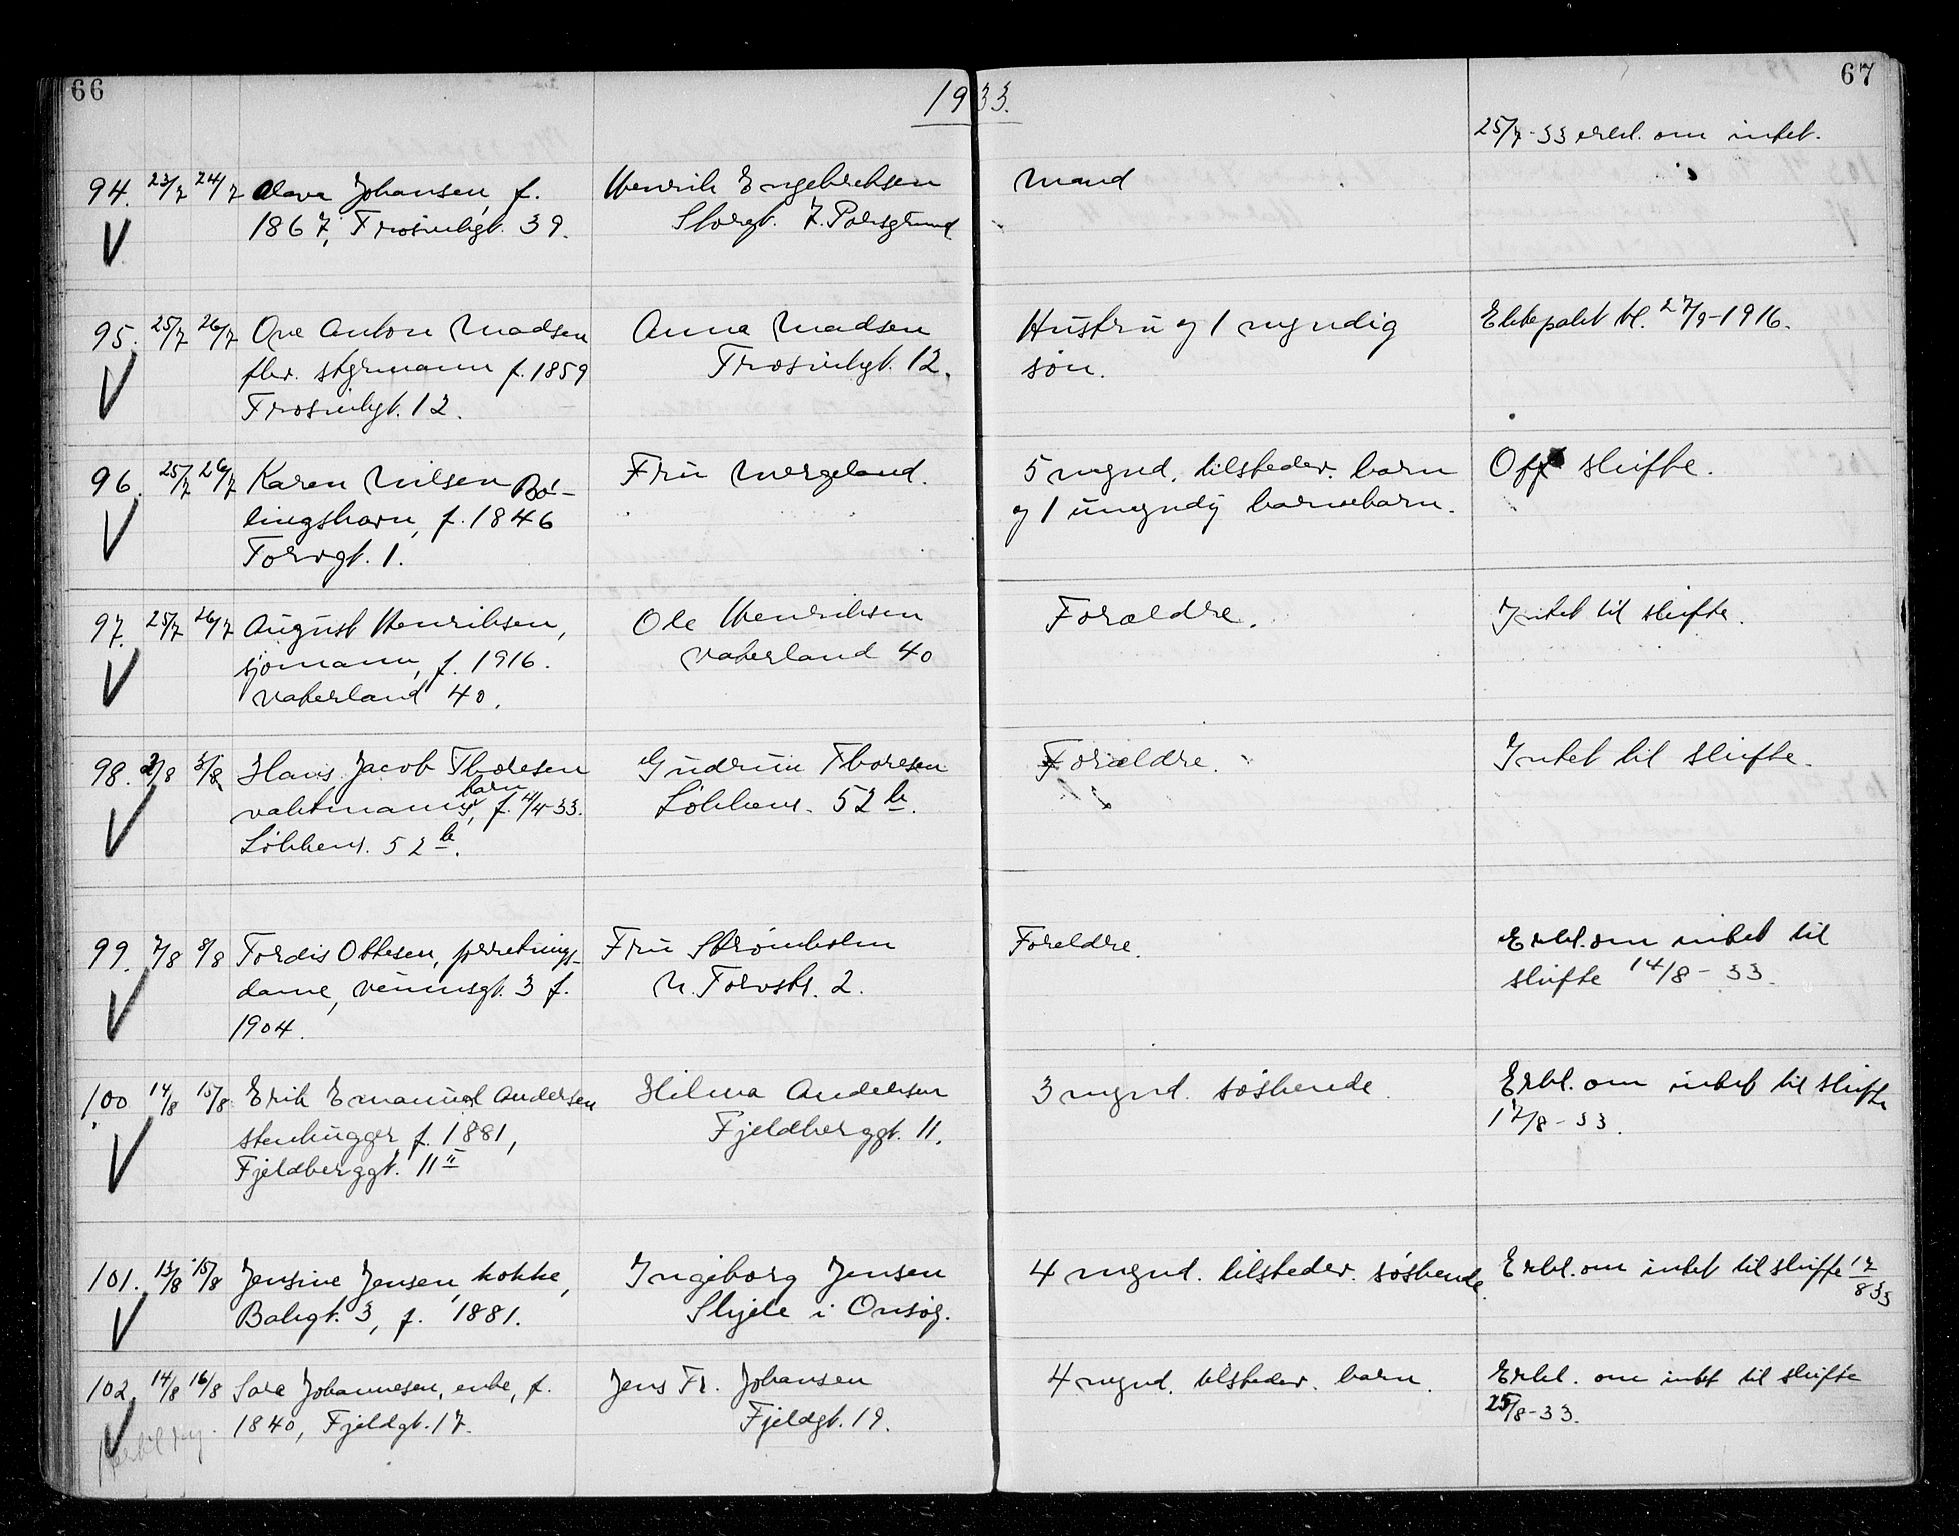 66
1933.
67
25/7-33 erkl. om intet.
94. 23/7 24/7 Olava Johansen, f.
1867, Frosinligt. 39.
Henrik Engebretsen
Storgt. 7. Porsgrund
Mand
95. 25/7 26/7 Ove Anton Madsen
fhv. styrmann f. 1859
Frosinligt. 12.
Anna Madsen
Frosinligt. 12.
Hustru og 1 myndig
søn.
Ektepakt tl. 27/9-1916.
96. 25/7 26/7 Karen Nilsen Bø-
lingshavn, f. 1846
Torvgt. 1.
Fru Mergeland.
5 mynd. tilsteder. barn
og 1 umyndig barnebarn.
Off skifte.
97. 25/7 26/7 August Henriksen,
sjømann, f. 1916.
Vaterland 40.
Ole Henriksen
Vaterland 40
Forældre.
Intet til skifte.
98. 2/8 3/8 Hans Jacob Thoresen
vaktmanns barn, f. 4/4-33.
Løkkens. 52 b.
Gudrun Thoresen
Løkkens. 52 b.
Forældre.
Intet til skifte.
99. 7/8 8/8 Tordis Ottesen, forretnings-
dame, Veumsgt. 3 f.
1904.
Fru Strømholm
N. Torvstr. 2.
Foreldre.
Erkl. om intet til
skifte 14/8-33.
100 14/8 15/8 Erik Emanuel Andersen
stenhugger f. 1881,
Fjeldberggt. 11 II
Hilma Andersen
Fjeldberggt. 11.
3 mynd. søskende.
Erkl. om intet til skifte
17/8-33.
101. 13/8 15/8 Jensine Jensen, kokke,
Bakgt. 3, f. 1881.
Ingeborg Jensen
Skjele i Onsøy.
4 mynd. tilsteder. søskende.
Erkl. om intet til skifte 17/8 33
102. 14/8 16/8 Sara Johannesen, enke, f.
1840, Fjeldgt. 17.
Jens Fr. Johansen
Fjeldgt. 19.
4 mynd. tilsteder. barn.
Erkl. om intet til skifte
25/8-33.